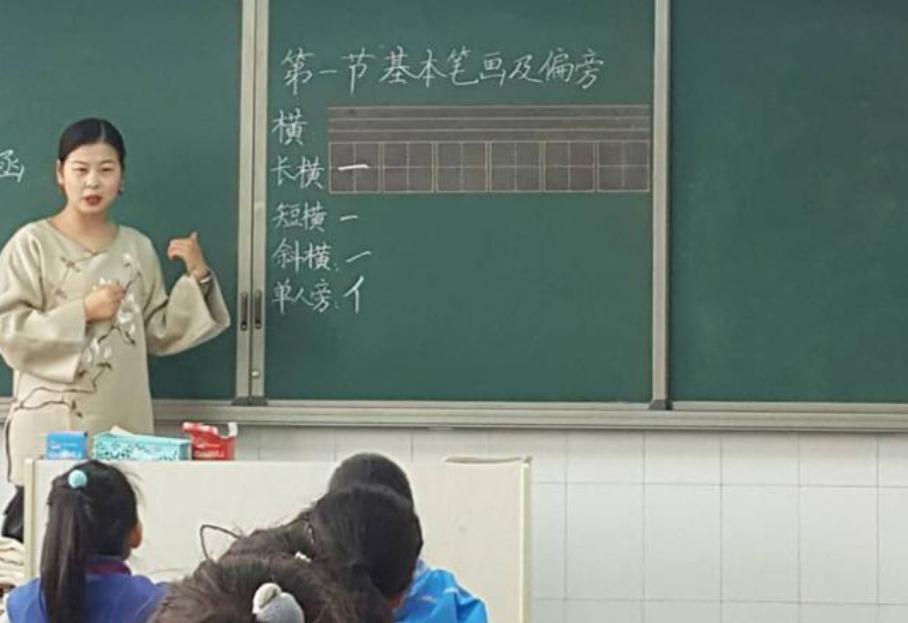 第一节基本笔画及偏旁
横
长横 一
短横 一
斜横: 一
单人旁: 亻
函